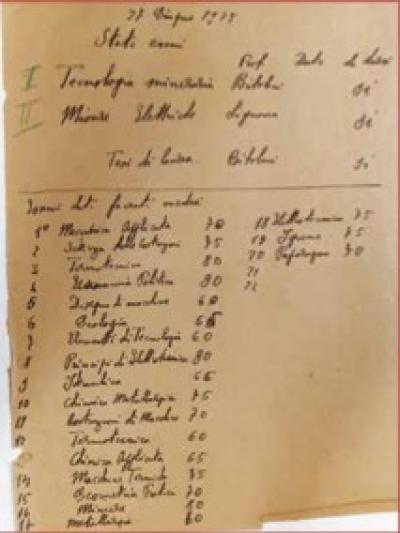 Giugno
Stato esami
Prof.
I Tecnologia mineraria Bitolini si
II Misure Elettriche si
Tesi di laurea Bitolini si
1° Meccanica Applicata 70
2 Scienza delle Costruzioni 75
3 Termotecnica 80
4 Economia Politica 90
5 Disegno di macchine 60
6 Geologia 65
7 Elementi di Tecnologia 60
8 Principi di Elettrotecnica 80
9 Idraulica 66
10 Chimica Metallurgica 75
11 Costruzioni di Macchine 70
12 Termotecnica 60
Chimica Applicata 65
14 Macchine Termiche 75
15 Geometria Pratica 70
16 Miniere 80
17 Metallurgia 60
18 Elettrotecnica 75
19 Igiene 75
20 70
21
22